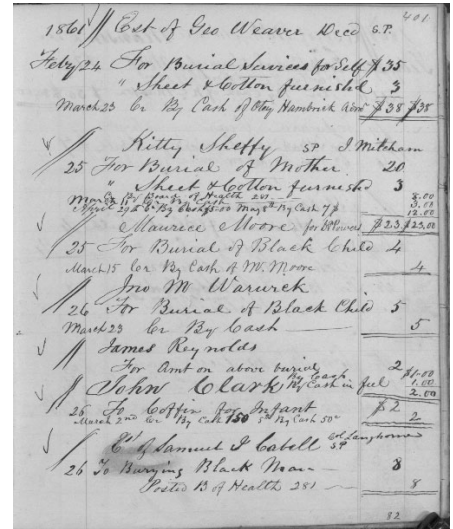 401
1861 Est of Geo Weaver Decd S.P.
Feby 24 For Burial Services for Self $35
" Sheet & Cotton furnished 3
March 23 Cr By Cash of Otey Hambrick Admr $38 $38
Kitty Sheffy SP J Mitcham
25 For Burial of Mother 20
" Sheet & Cotton furnished 3
March By Board of Health 281 8.00
April 29th By Cash 3.00 May By Cash 7 $ 12.00
$23 $23.00
Maurice Moore for
25 For Burial of Black Child 4
March 15 Cr By Cash of M. Moore 4
Jno M Warwick
26 For Burial of Black Child 5
March 23 Cr By Cash 5
James Reynolds
For Amt on above burial 2 By Cash $1.00
John Clark By Cash in full 1.00
2.00
26 To Coffin for Infant $2
March 2nd Cr By Cash 150 5th By Cash 50c 2
Est of Samuel J Cabell Col Langhorne SP
26 To Burying Black Man 8
Posted B of Health 281 8
82